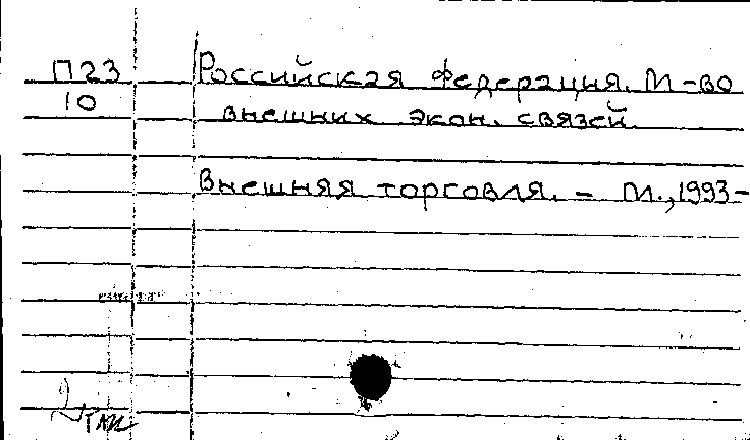 П23 Российская Федерация. М-во
10 внешних экон. связей.
Внешняя торговля. - М., 1993-
2